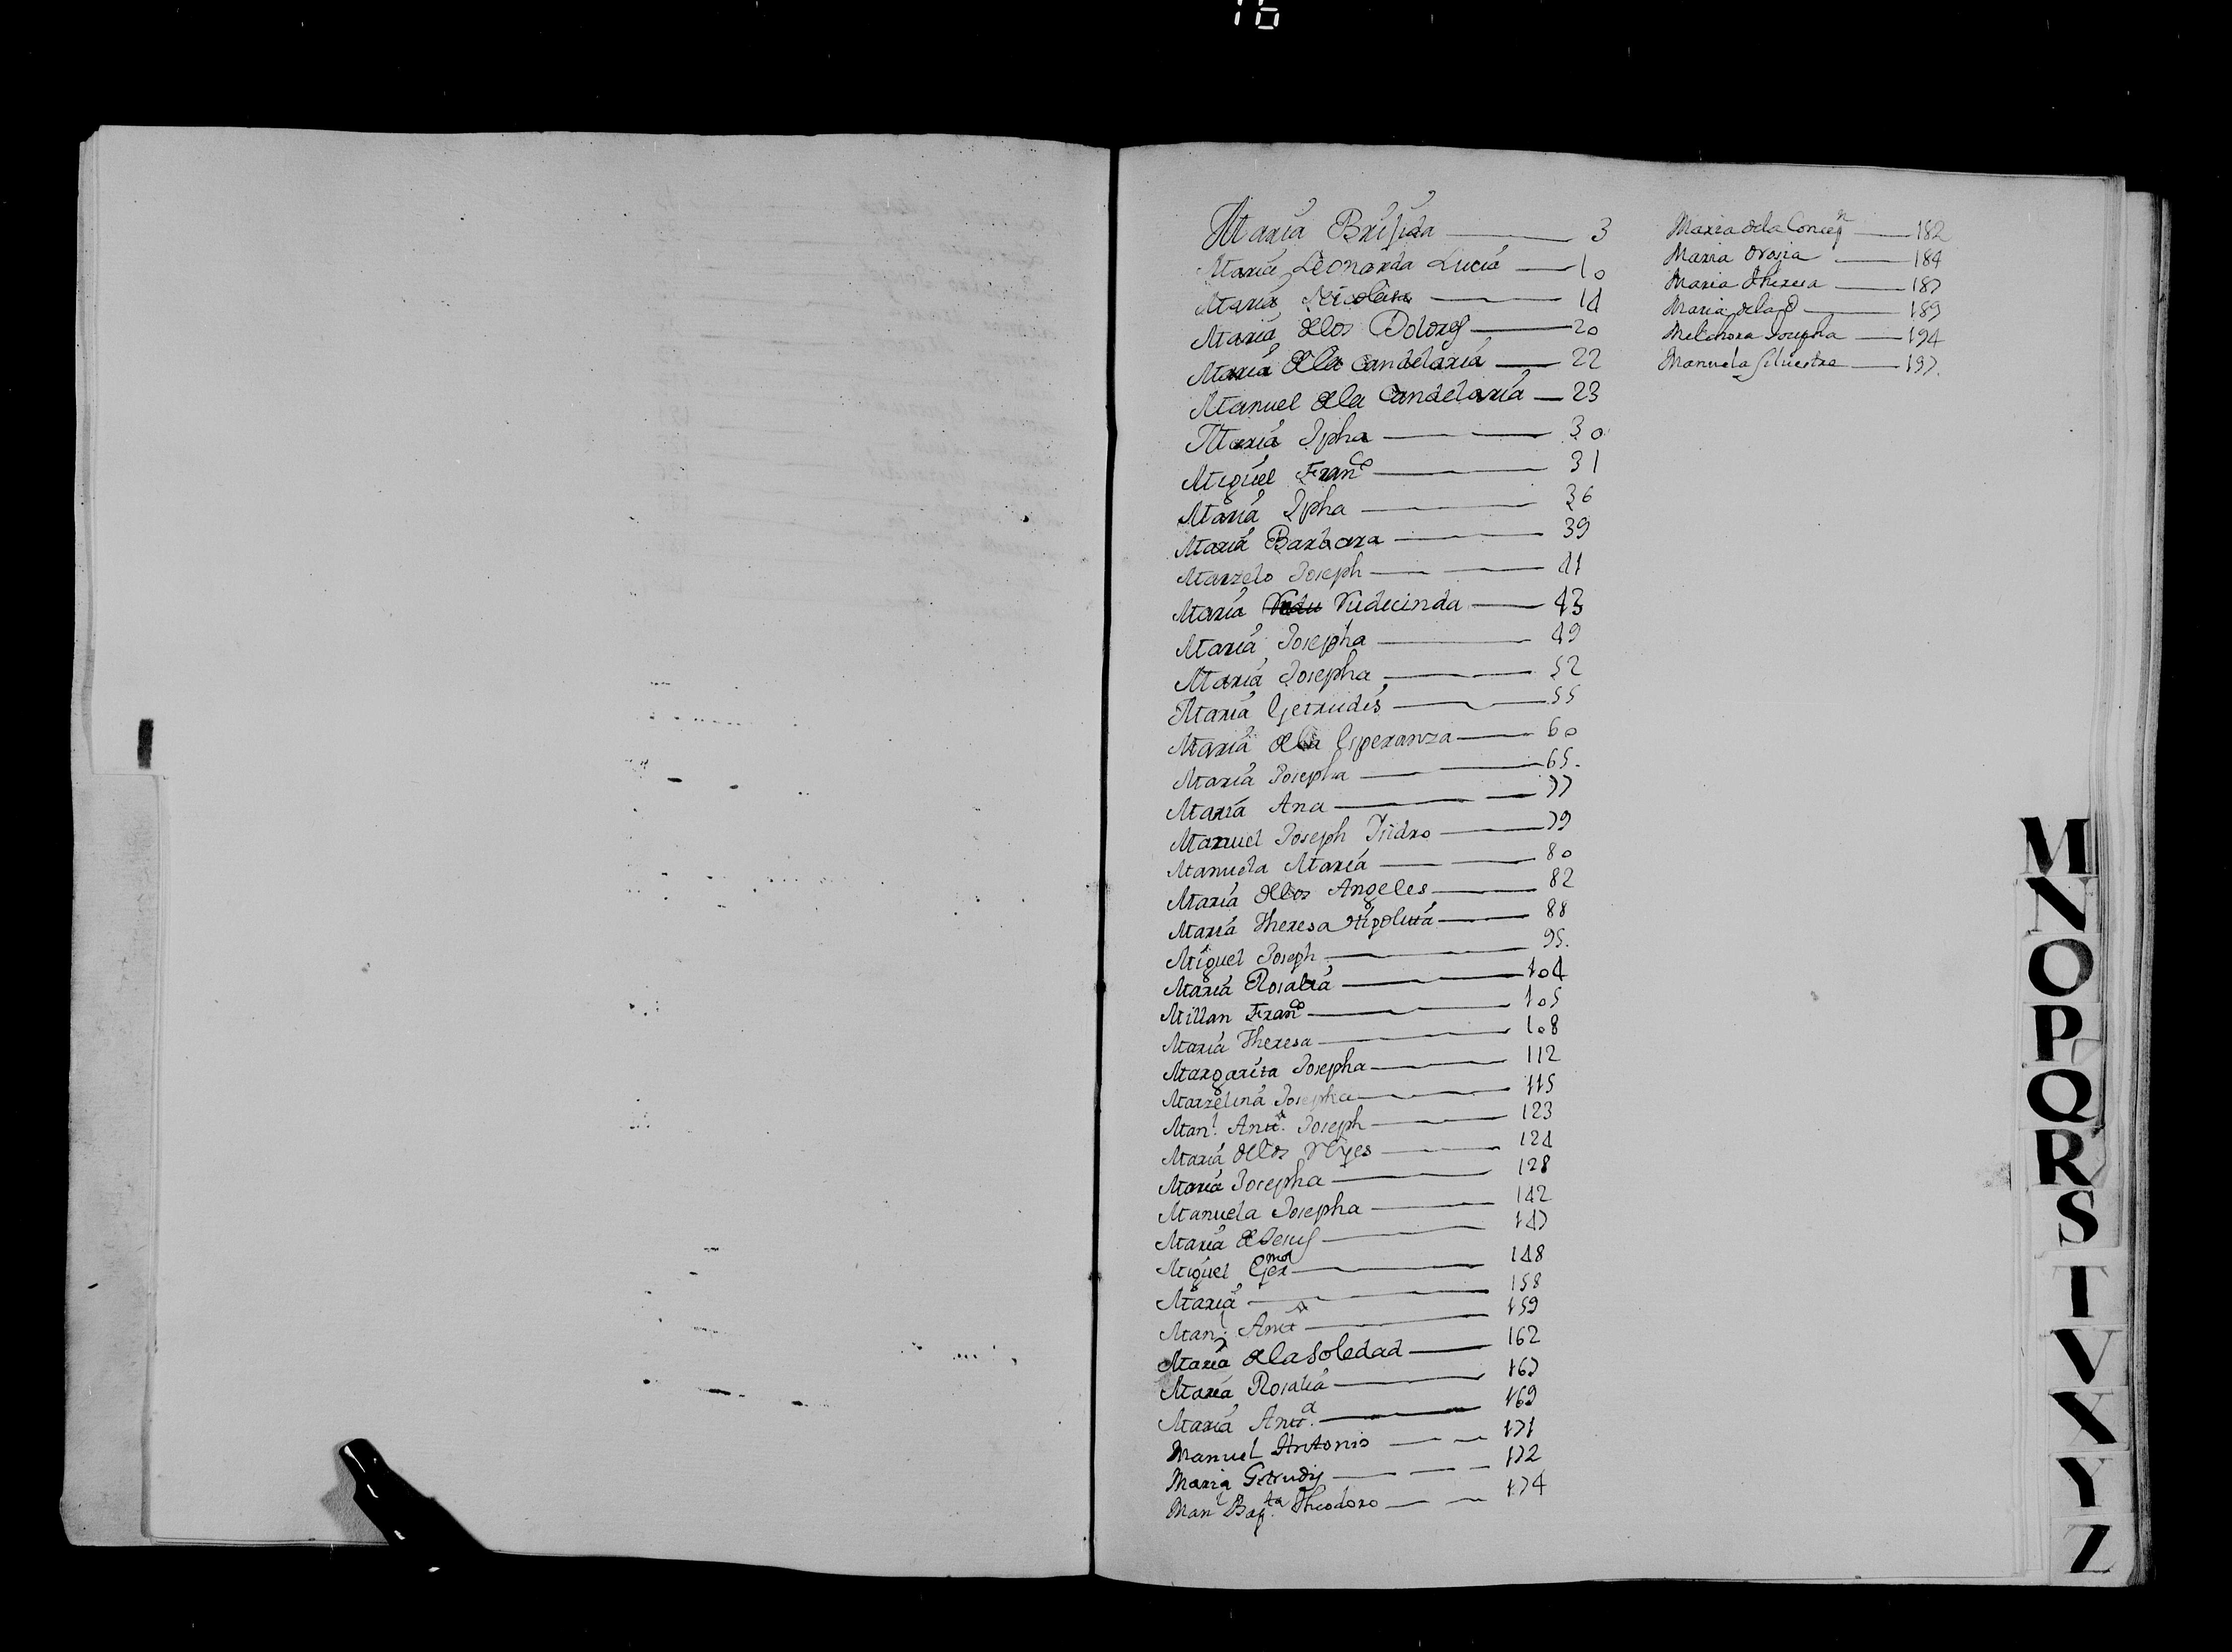 16
María Brijida — 3
María Leonarda Lucía — 10
María Nicolasa — 14
María de los Dolores — 20
María de la Candelaria — 22
Manuel de la Candelaria — 23
María Jpha — 30
Miguel Franco — 31
María Jpha — 36
María Barbara — 39
Marzelo Joseph — 41
María Vidu Videcinda — 43
María Josepha — 49
María Josepha — 52
María Getrudis — 55
María de la Esperanza — 60
María Josepha — 65.
María Ana — 77
Manuel Joseph Isidro — 79
Manuela María — 80
María de los Angeles — 82
María Theresa Hipolita — 88
Miguel Joseph — 95.
María Rosalía — 104
Millan Franco — 105
María Theresa — 108
Margarita Josepha — 112
Marzelina Josepha — 115
Manl. Anto. Joseph — 123
María de los Reyes — 124
María Josepha — 128
Manuela Josepha — 142
María de Jesus — 147
Miguel Germo — 148
María — 158
Manl. Anto — 159
María de la Soledad — 162
María Rosalia — 167
María Anta. — 169
Manuel Antonio — 171
Maria Getrudis — 172
Manl Bapta. Theodoro — 174
Maria de la Concepn — 182
Maria Orosia — 184
Maria Theresa — 187
Maria de la O — 189
Melchora Josepha — 194
Manuela Silvestra — 197.
M
N
O
P
Q
R
S
T
V
X
Y
Z